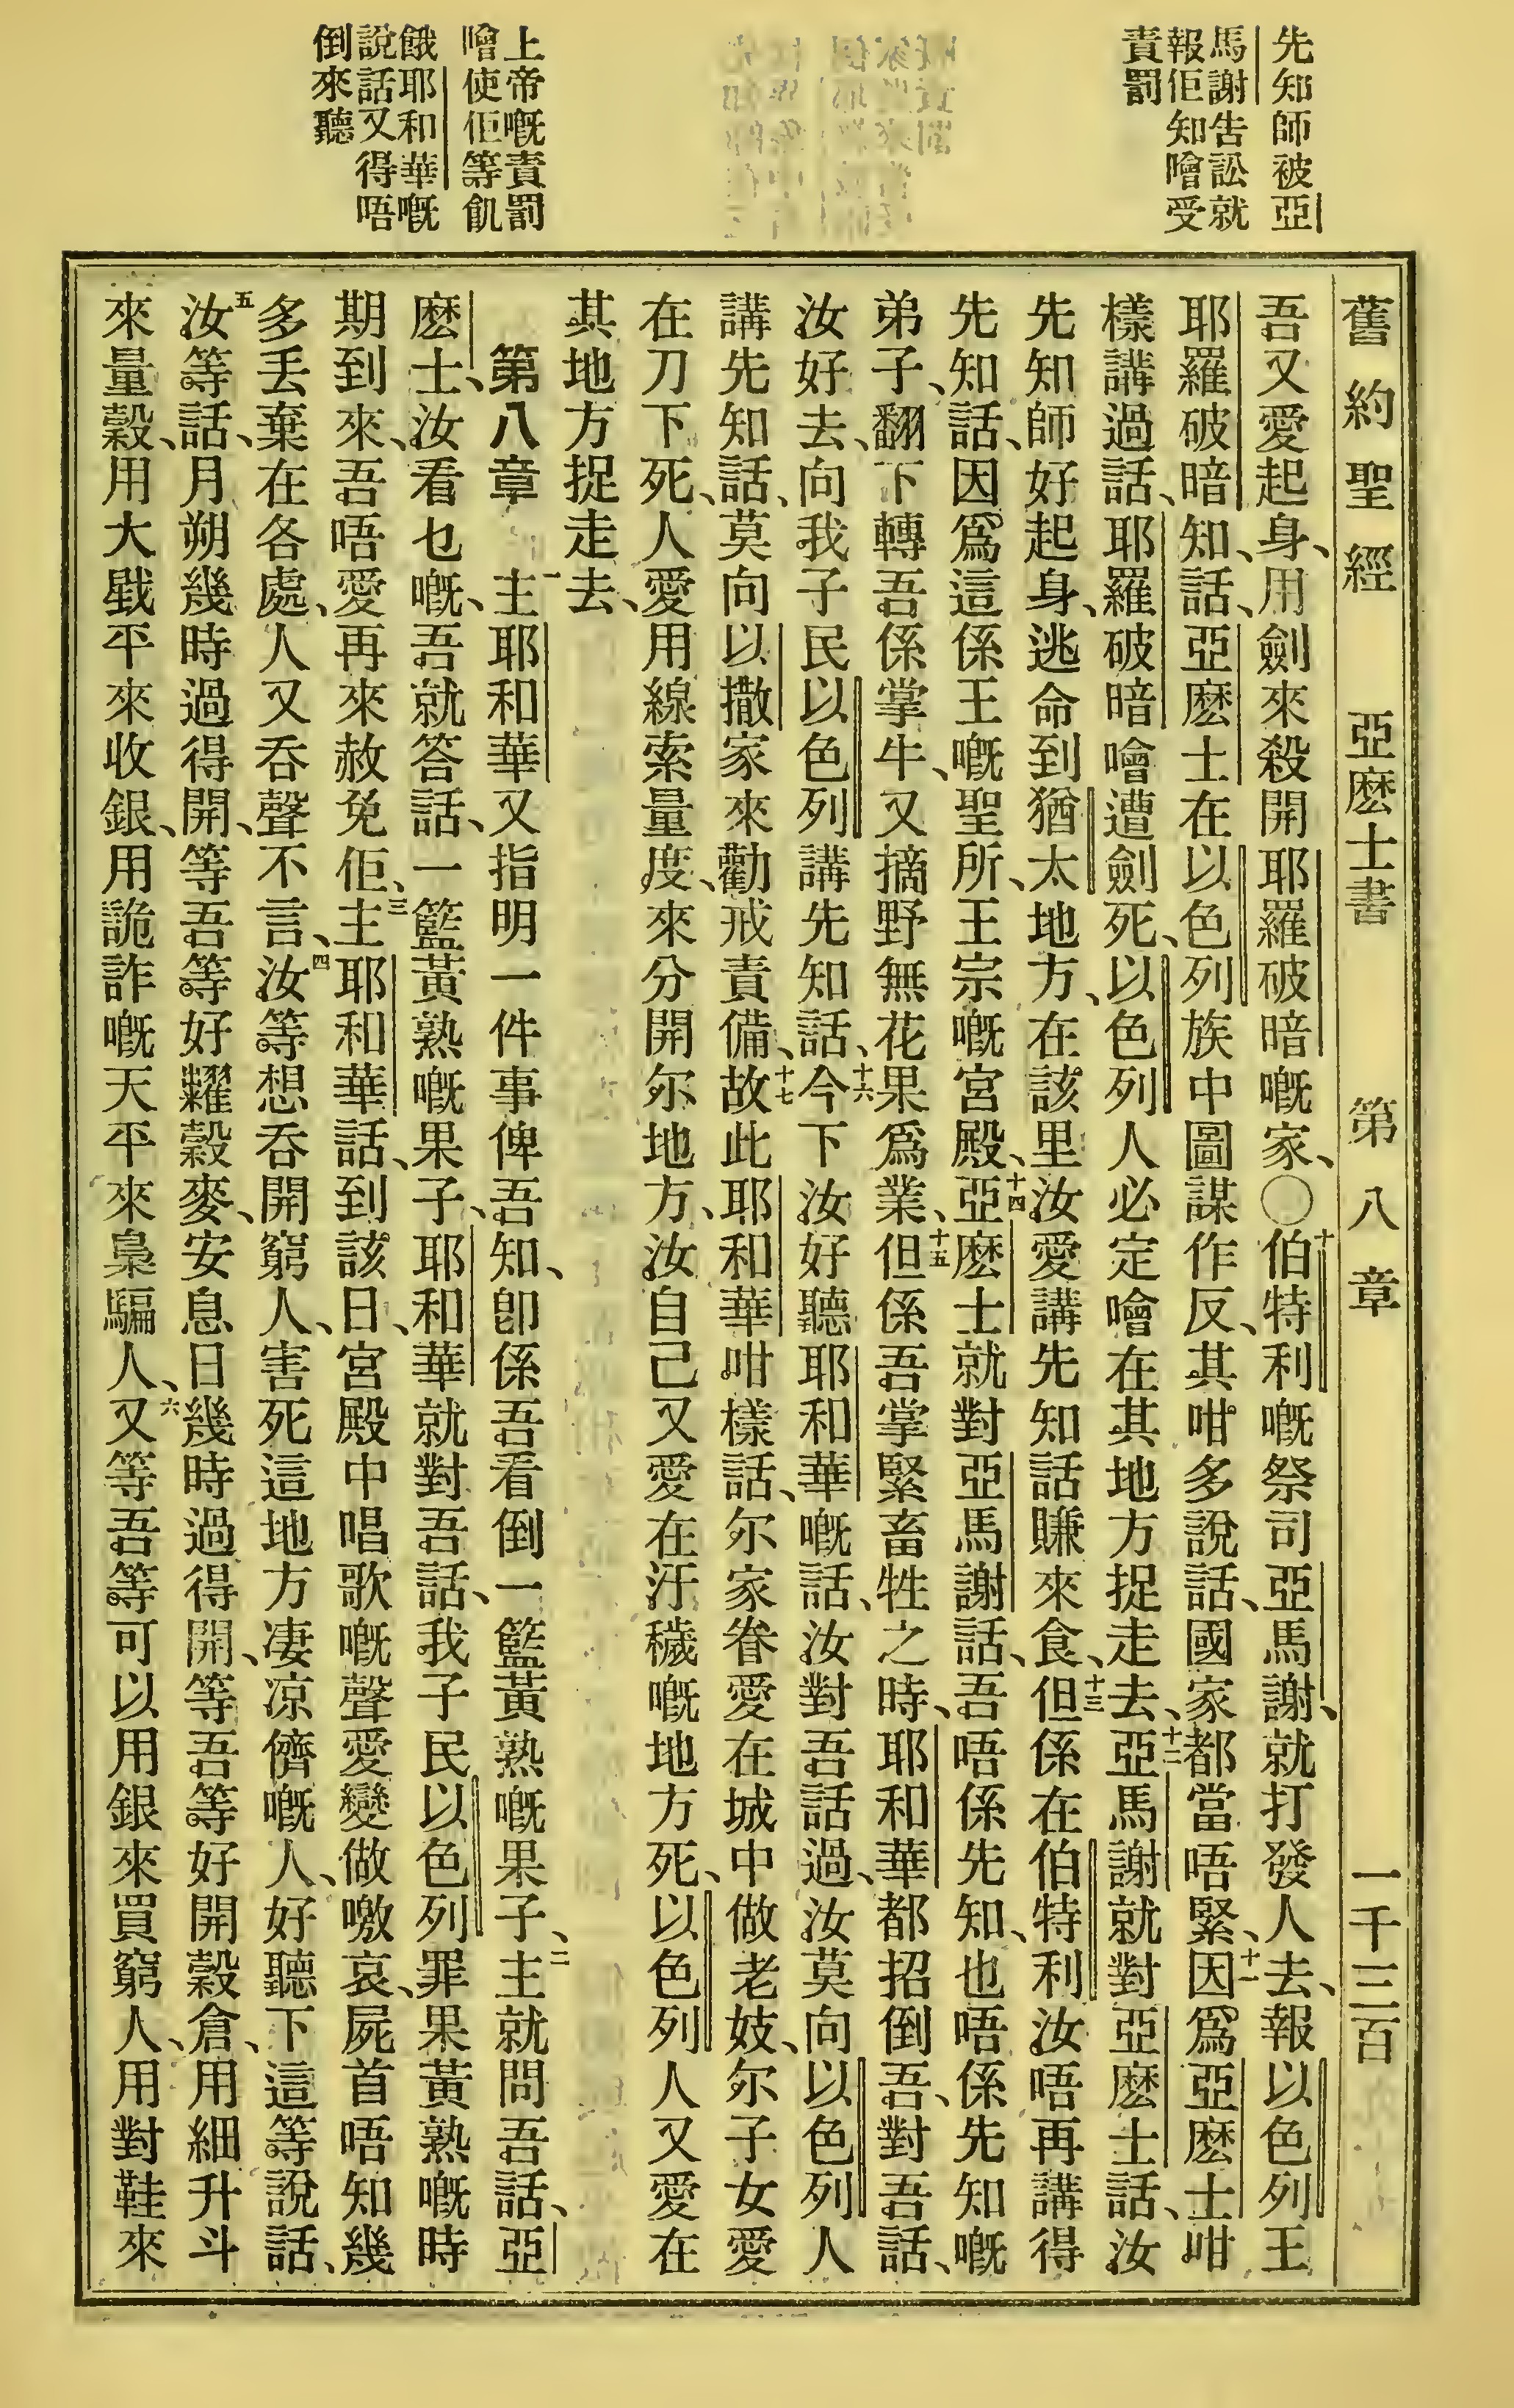 先知師被亞
馬謝告訟就
報佢知噲受
責罰
上帝嘅責罰
噲使佢等飢
餓耶和華嘅
說話又得唔
倒來聽
舊約聖經 亞麽士書 第八章 一千三百
吾又愛起身、用劍來殺開耶羅破暗嘅家、〇十伯特利嘅祭司亞馬謝、就打發人去、報以色列王
耶羅破暗知、話、亞麽士在以色列族中圖謀作反、其咁多說話、國家都當唔緊、十一因爲亞麽士咁
樣講過話、耶羅破暗噲遭劍死、以色列人必定噲在其地方捉走去、十二亞馬謝就對亞麽士話、汝
先知師好起身、逃命到猶太地方、在該里汝愛講先知話賺來食、十三但係在伯特利汝唔再講得
先知話、因爲這係王嘅聖所、王宗嘅宮殿、十四亞麽士就對亞馬謝話、吾唔係先知、也唔係先知嘅
弟子、翻下轉吾係掌牛、又摘野無花果爲業、十五但係吾掌緊畜牲之時、耶和華都招倒吾、對吾話、
汝好去、向我子民以色列講先知話、十六今下汝好聽耶和華嘅話、汝對吾話過、汝莫向以色列人
講先知話、莫向以撒家來勸戒責備、十七故此耶和華咁樣話、尔家眷愛在城中做老妓、尔子女愛
在刀下死、人愛用線索量度、來分開尔地方、汝自己又愛在汙穢嘅地方死、以色列人又愛在
其地方捉走去、
第八章 一主耶和華又指明一件事俾吾知、卽係吾看倒一籃黃熟嘅果子、二主就問吾話、亞
麽士、汝看乜嘅、吾就答話、一籃黃熟嘅果子、耶和華就對吾話、我子民以色列罪果黃熟嘅時
期到來、吾唔愛再來赦免佢、三主耶和華話、到該日、宮殿中唱歌嘅聲愛變做噭哀、屍首唔知幾
多丢棄在各處、人又吞聲不言、四汝等想吞開窮人、害死這地方凄凉儕嘅人、好聽下這等說話、
五汝等話、月朔幾時過得開、等吾等好糶穀麥、安息日幾時過得開、等吾等好開穀倉、用細升斗
來量穀、用大戥平來收銀、用詭詐嘅天平來梟騙人、六又等吾等可以用銀來買窮人、用對鞋來